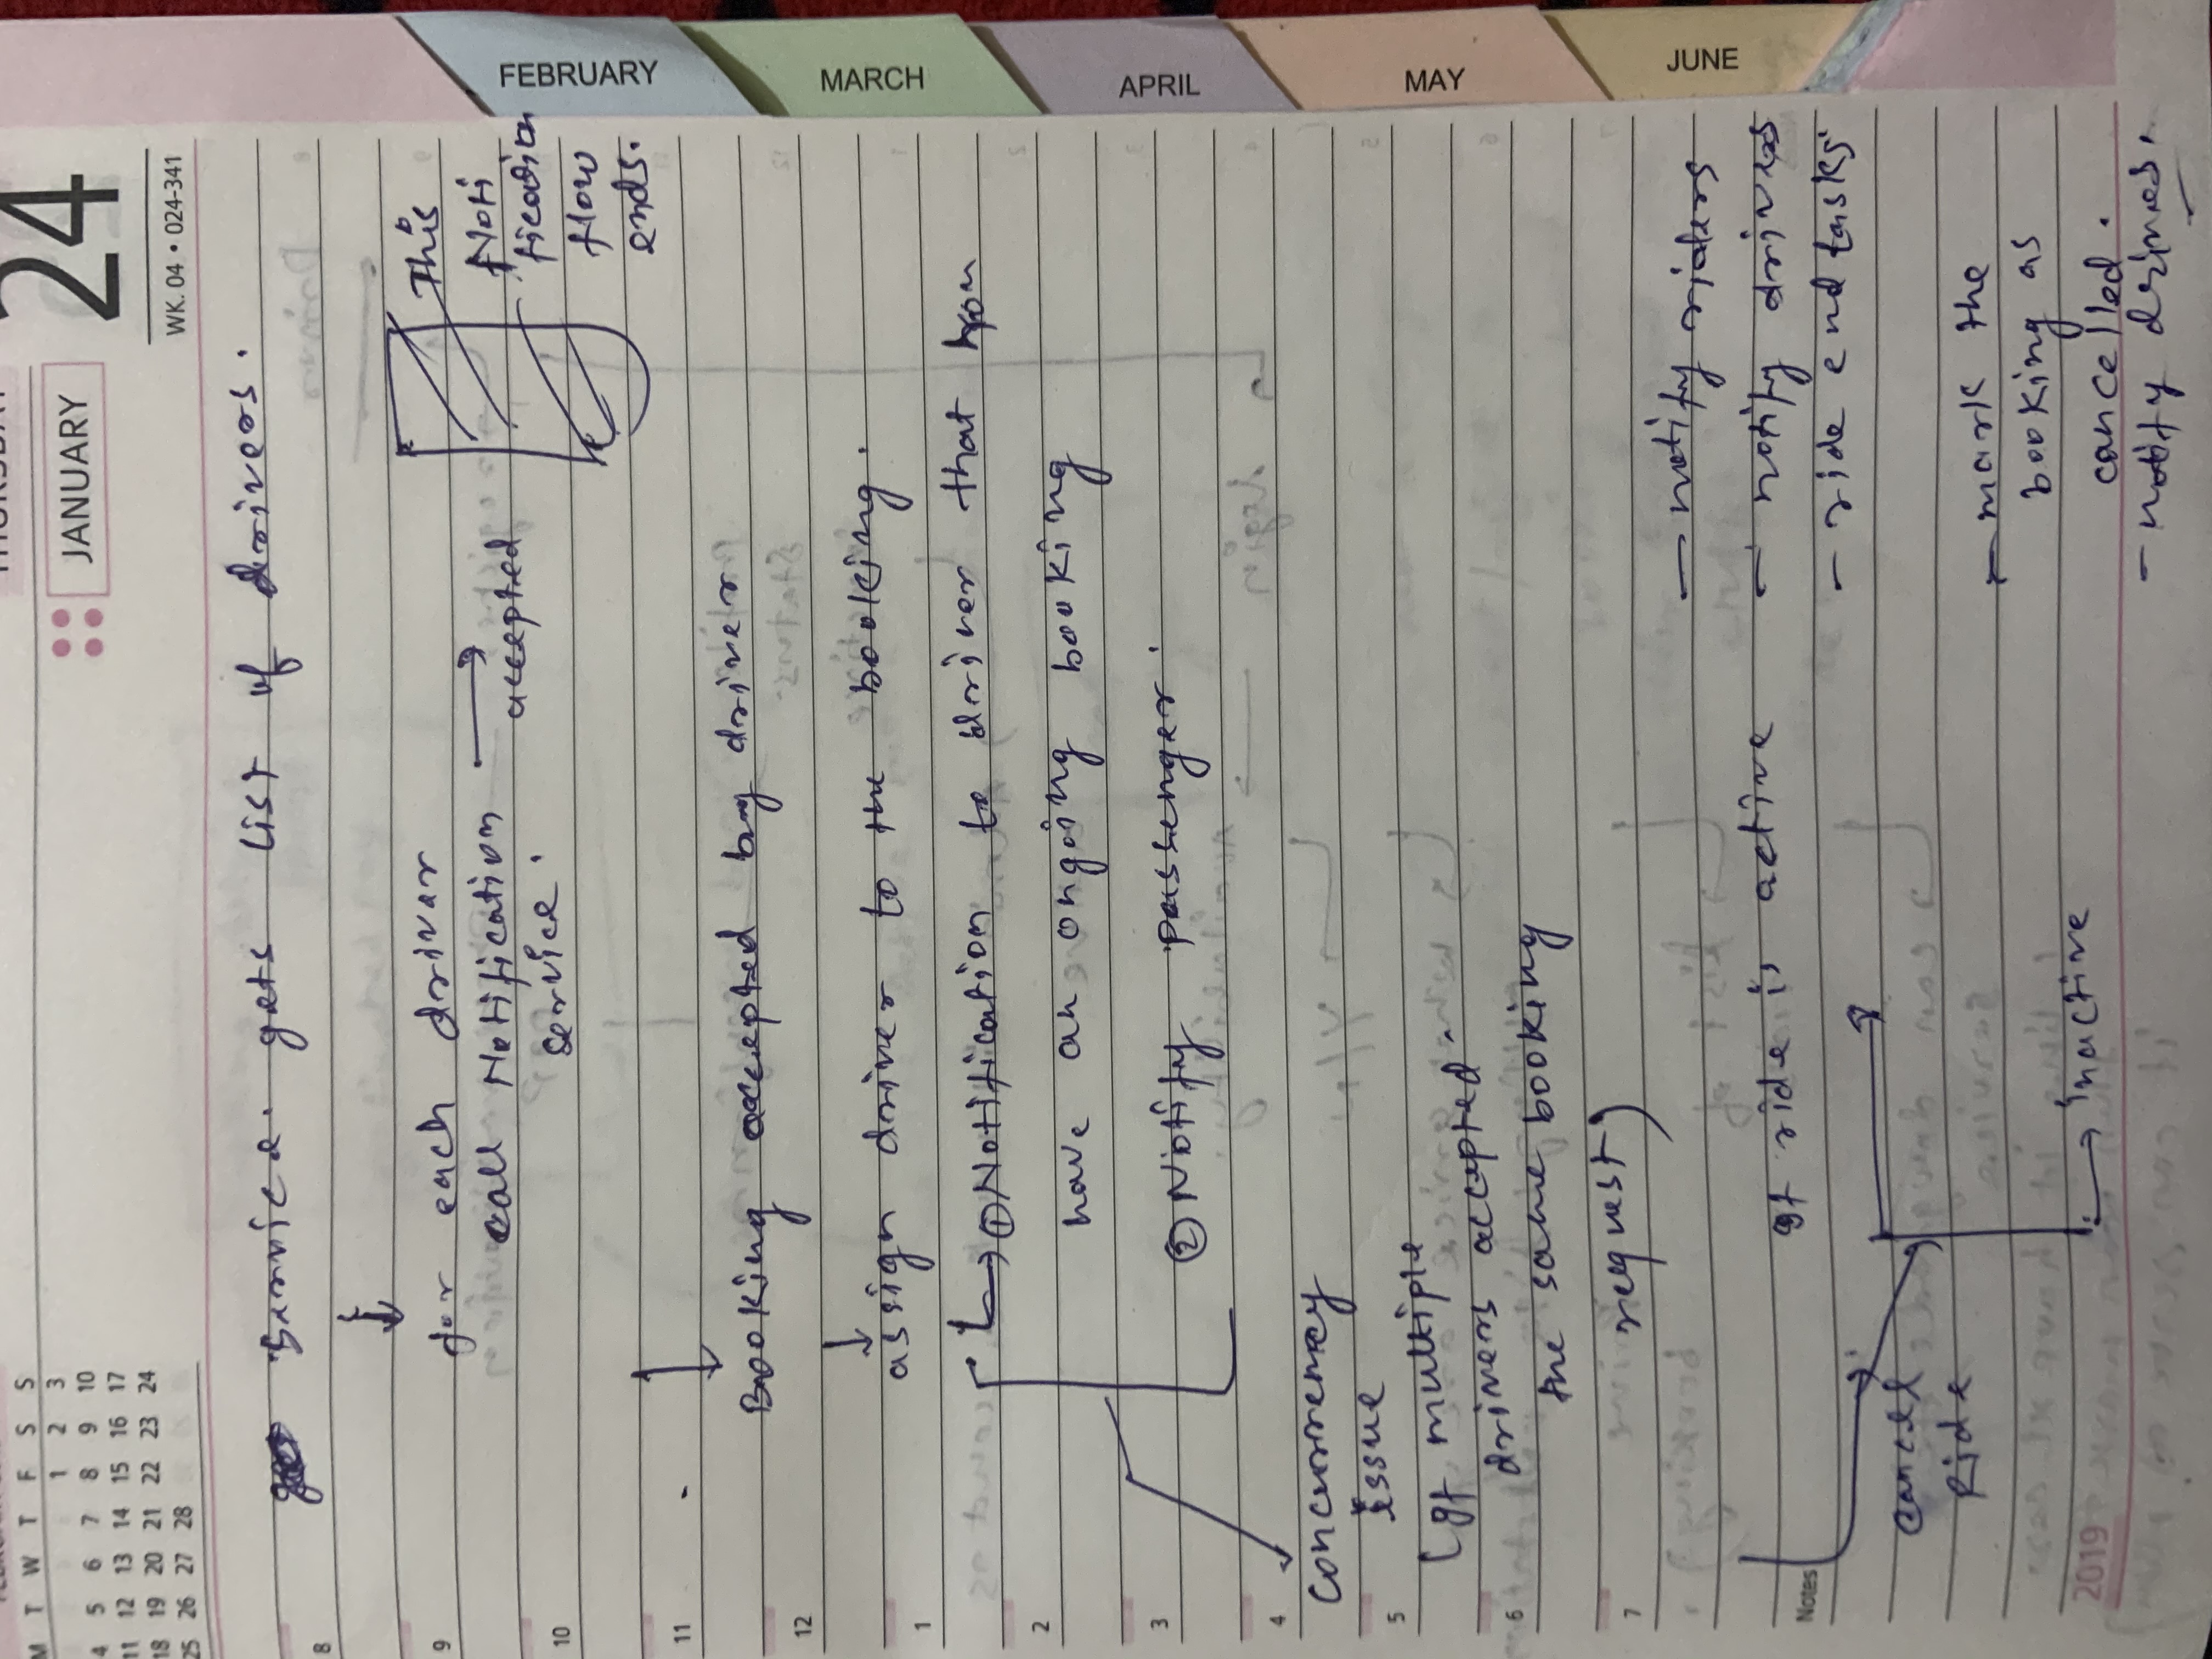 THURSDAY
JANUARY
24
WK. 04 • 024-341
M T W T F S S
1 2 3
4 5 6 7 8 9 10
11 12 13 14 15 16 17
18 19 20 21 22 23 24
25 26 27 28
8
Service. gets list of drivers.
9
for each driver
call Notification → accepted
service.
10
This
Noti
fication
flow
ends.
11
Booking accepted by driver
12
assign driver to the booking.
1
① Notification to driver that you
2
have an ongoing booking
3
② Notify passenger.
4
Concurrency
issue
5
(If multiple
drivers accepted.
6
the same booking
request)
7
- notify riders
If ride is active - notify drivers
Notes
- ride end tasks
cancel
Ride
- mark the
booking as
cancelled.
→ inactive
- notify drivers.
2019
FEBRUARY
MARCH
APRIL
MAY
JUNE